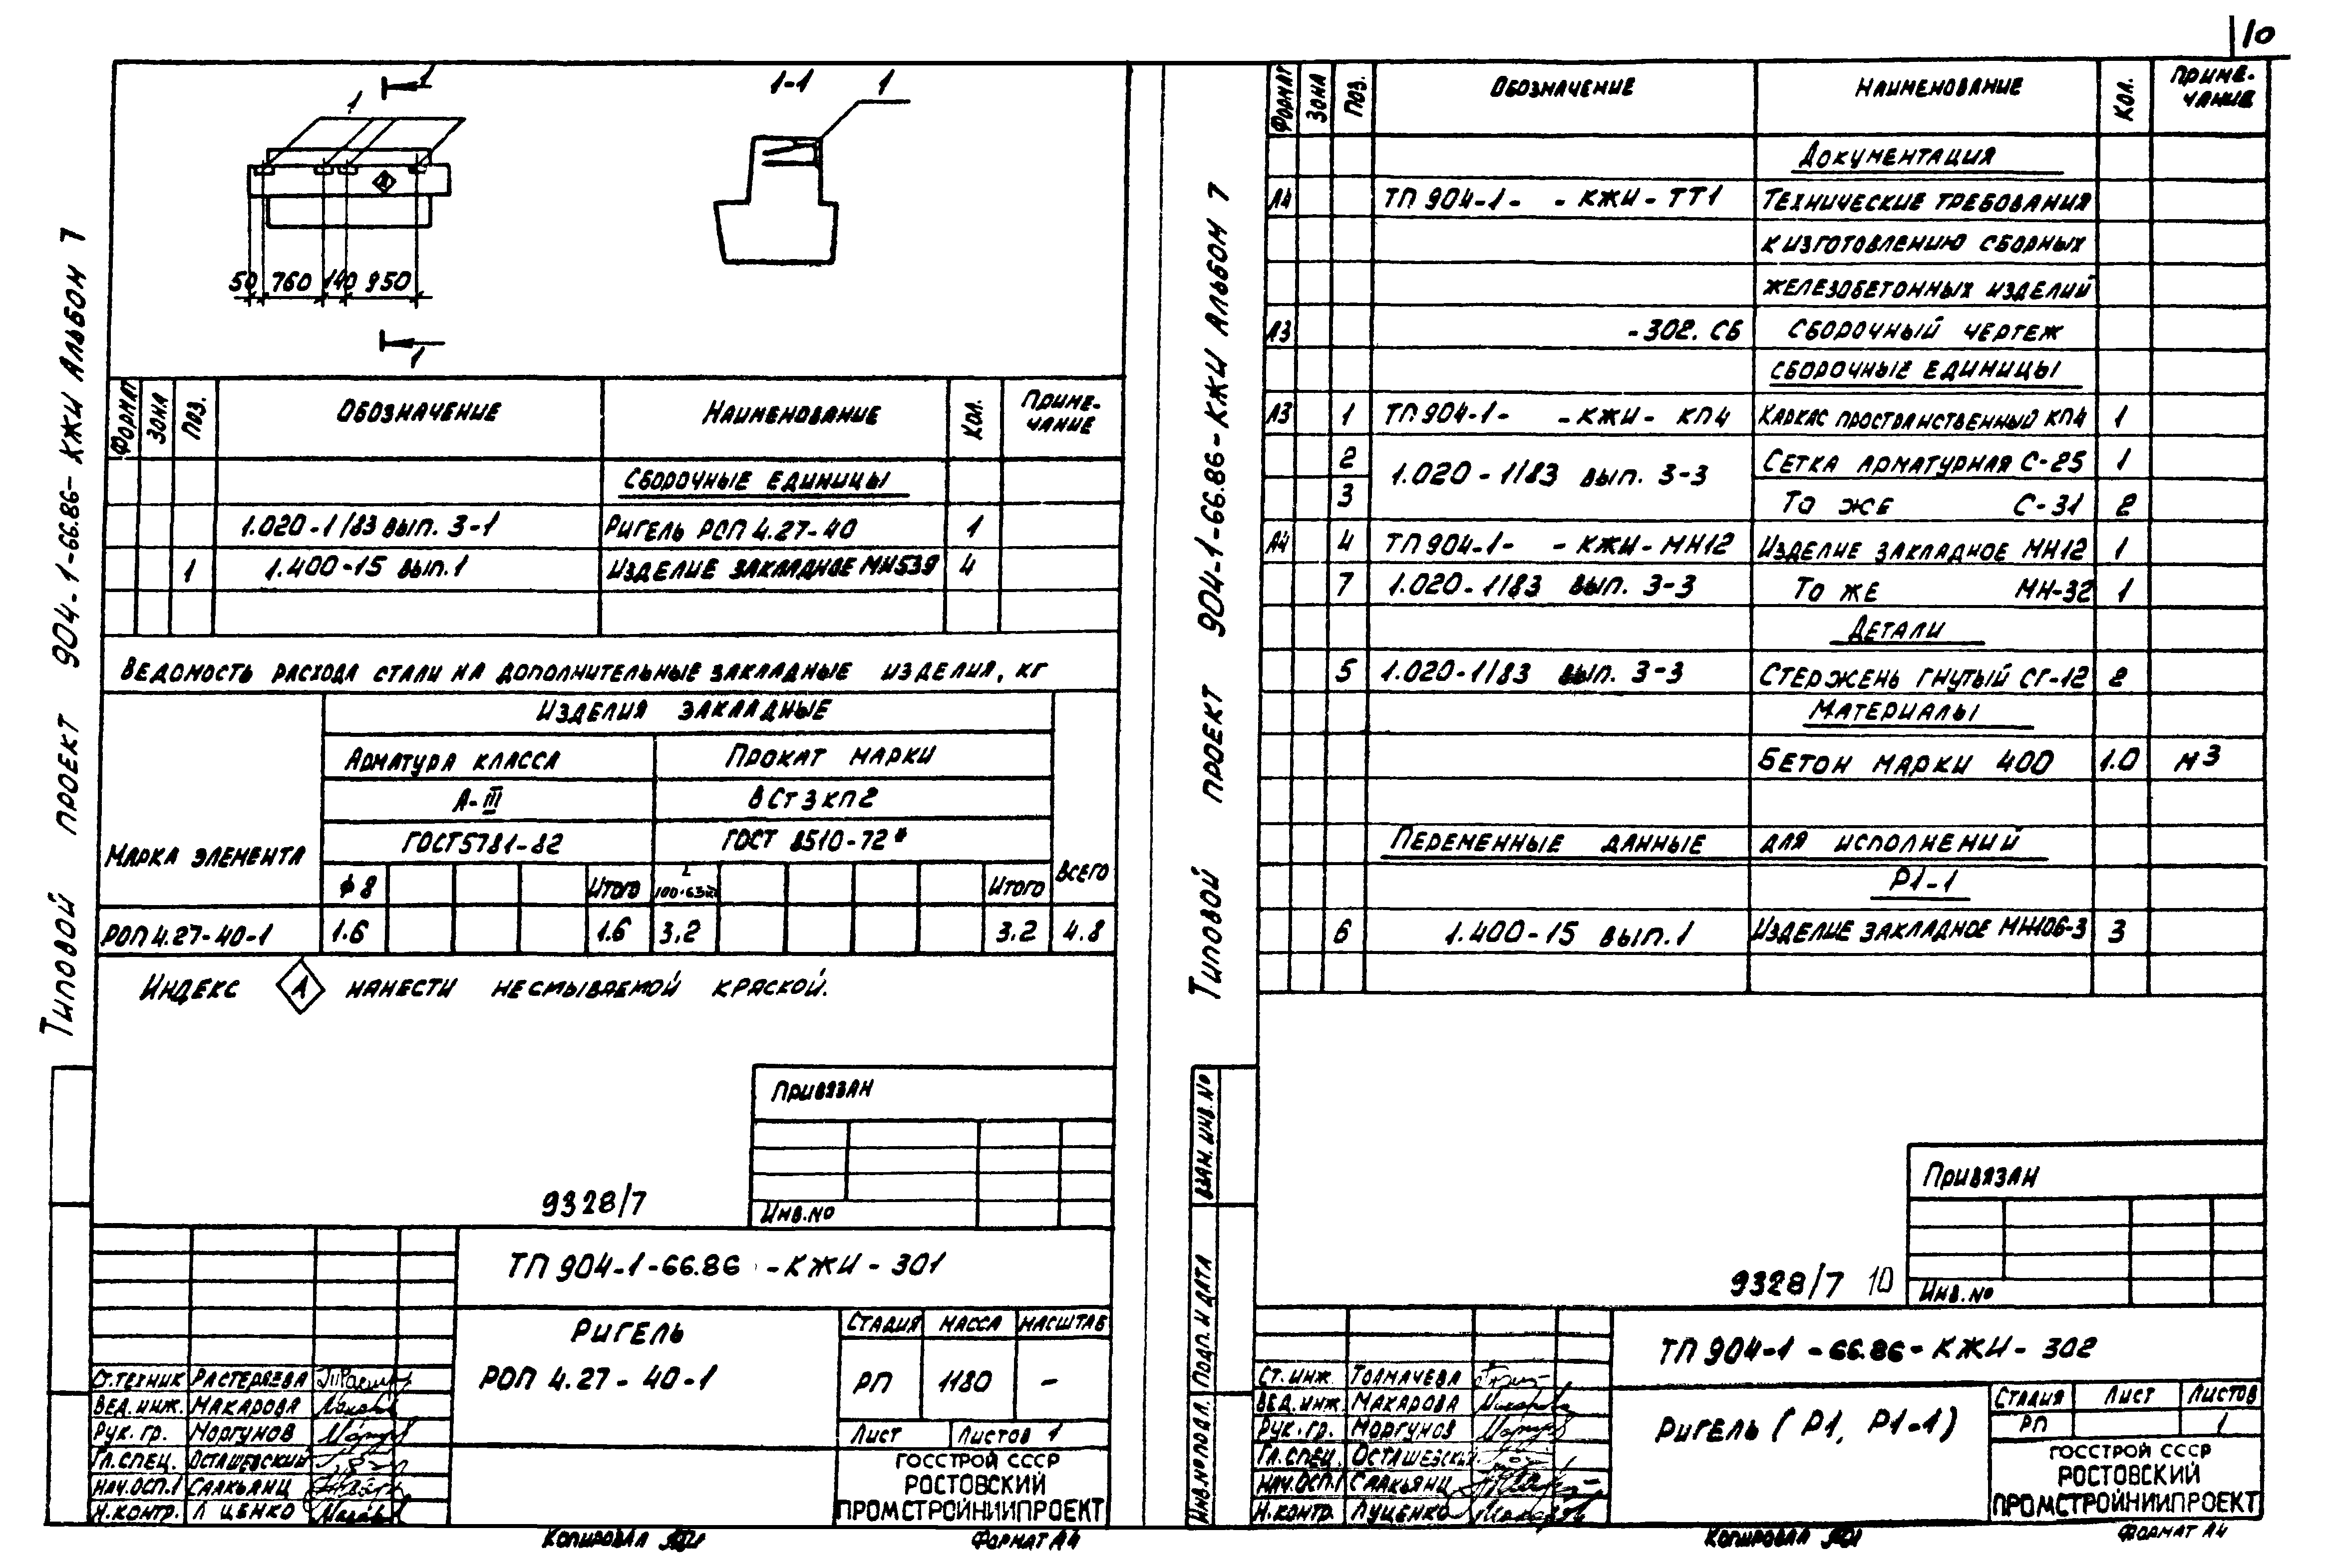 10
Типовой проект 904-1-66.86-КЖИ Альбом 7
1
1
1-1
1
А
50 760 140 950
1
Формат Зона Поз. Обозначение Наименование Кол. Примечание
Сборочные единицы
1.020-1/83 вып. 3-1 Ригель РОП 4.27-40 1
1 1.400-15 вып.1 Изделие закладное МН539 4
Ведомость расхода стали на дополнительные закладные изделия, кг
Марка элемента
Изделия закладные
Арматура класса Прокат марки
А-III ВСт3кп2
ГОСТ5781-82 ГОСТ 8510-72*
ф8 Итого Итого Всего
РОП 4.27-40-1 1.6 1.6 3.2 3.2 4.8
Индекс А нанести несмываемой краской.
Привязан
Инв.№
9328/7
ТП 904-1-66.86-КЖИ-301
Ригель
РОП 4.27-40-1
Стадия Масса Масштаб
РП 1180 -
Лист Листов 1
Ст.техник Растеряева
Вед. инж. Макарова
Рук. гр. Моргунов
Гл. спец. Осташевский
Нач.ОСП.1 Саакьянц
Н.контр. Л ценко
ГОССТРОЙ СССР
РОСТОВСКИЙ
ПРОМСТРОЙНИИПРОЕКТ
Копировал
Формат А4
Типовой проект 904-1-66.86-КЖИ Альбом 7
Формат Зона Поз. Обозначение Наименование Кол. Примечание
Документация
А4 ТП 904-1- -КЖИ-ТТ1 Технические требования
к изготовлению сборных
железобетонных изделий
А3 -302. СБ Сборочный чертеж
Сборочные единицы
А3 1 ТП904-1- -КЖИ- КП4 Каркас пространственный КП4 1
2 1.020-1/83 вып. 3-3 Сетка арматурная С-25 1
3 То же С-31 2
А4 4 ТП904-1- -КЖИ-МН12 Изделие закладное МН12 1
7 1.020-1/83 вып. 3-3 То же МН-32 1
Детали
5 1.020-1/83 вып. 3-3 Стержень гнутый СГ-12 2
Материалы
Бетон марки 400 1.0 м3
Переменные данные для исполнений
Р1-1
6 1.400-15 вып.1 Изделие закладное МН106-3 3
Взам.инв.№
Подп. и дата
Инв.№подл.
Привязан
Инв.№
9328/7 10
ТП 904-1-66.86-КЖИ-302
Ригель (Р1, Р1-1)
Стадия Лист Листов
РП 1
Ст. инж. Толмачева
Вед. инж. Макарова
Рук. гр. Моргунов
Гл. спец. Осташевский
Нач.ОСП.1 Саакьянц
Н.контр. Луценко
ГОССТРОЙ СССР
РОСТОВСКИЙ
ПРОМСТРОЙНИИПРОЕКТ
Копировал
Формат А4